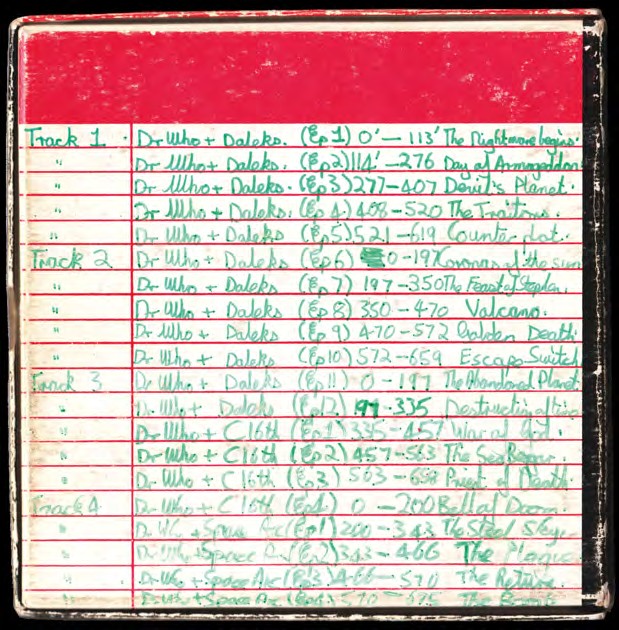 Track 1 . Dr Who + Daleks. (Ep 1) 0' — 113' The Nightmare begins.
" Dr Who + Daleks. (Ep 2) 114' - 276 Day of Armageddon
" Dr Who + Daleks. (Ep 3) 277 - 407 Devil's Planet.
" Dr Who + Daleks. (Ep 4) 408 - 520 The Traitors.
" Dr Who + Daleks (Ep 5) 521 - 619 Counter plot.
Track 2 Dr Who + Daleks (Ep 6) 0 - 197 Coronas of the sun
" Dr Who + Daleks (Ep 7) 197 - 350 The Feast of Stephen.
" Dr Who + Daleks (Ep 8) 350 - 470 Valcano.
" Dr Who + Daleks (Ep 9) 470 - 572 Golden Death
" Dr Who + Daleks (Ep 10) 572 - 659 Escape Switch
Track 3 Dr Who + Daleks (Ep 11) 0 - 197 The Abandoned Planet
" Dr Who + Daleks (Ep 12) 197 - 335 Destruction of time
" Dr Who + C16th (Ep 1) 335 - 457 War of God.
" Dr Who + C16th (Ep 2) 457 - 563 The Sea Beggar.
" Dr Who + C16th (Ep 3) 563 - 658 Priest of Death.
Track 4 Dr Who + C16th (Ep 4) 0 - 200 Bell of Doom.
" Dr Who + Space Arc (Ep 1) 200 - 343 The Steel Sky.
" Dr Who + Space Arc (Ep 2) 343 - 466 The Plague
" Dr Who + Space Arc (Ep 3) 466 - 570 The Return.
" Dr Who + Space Arc (Ep 4) 570 - 675 The Bomb